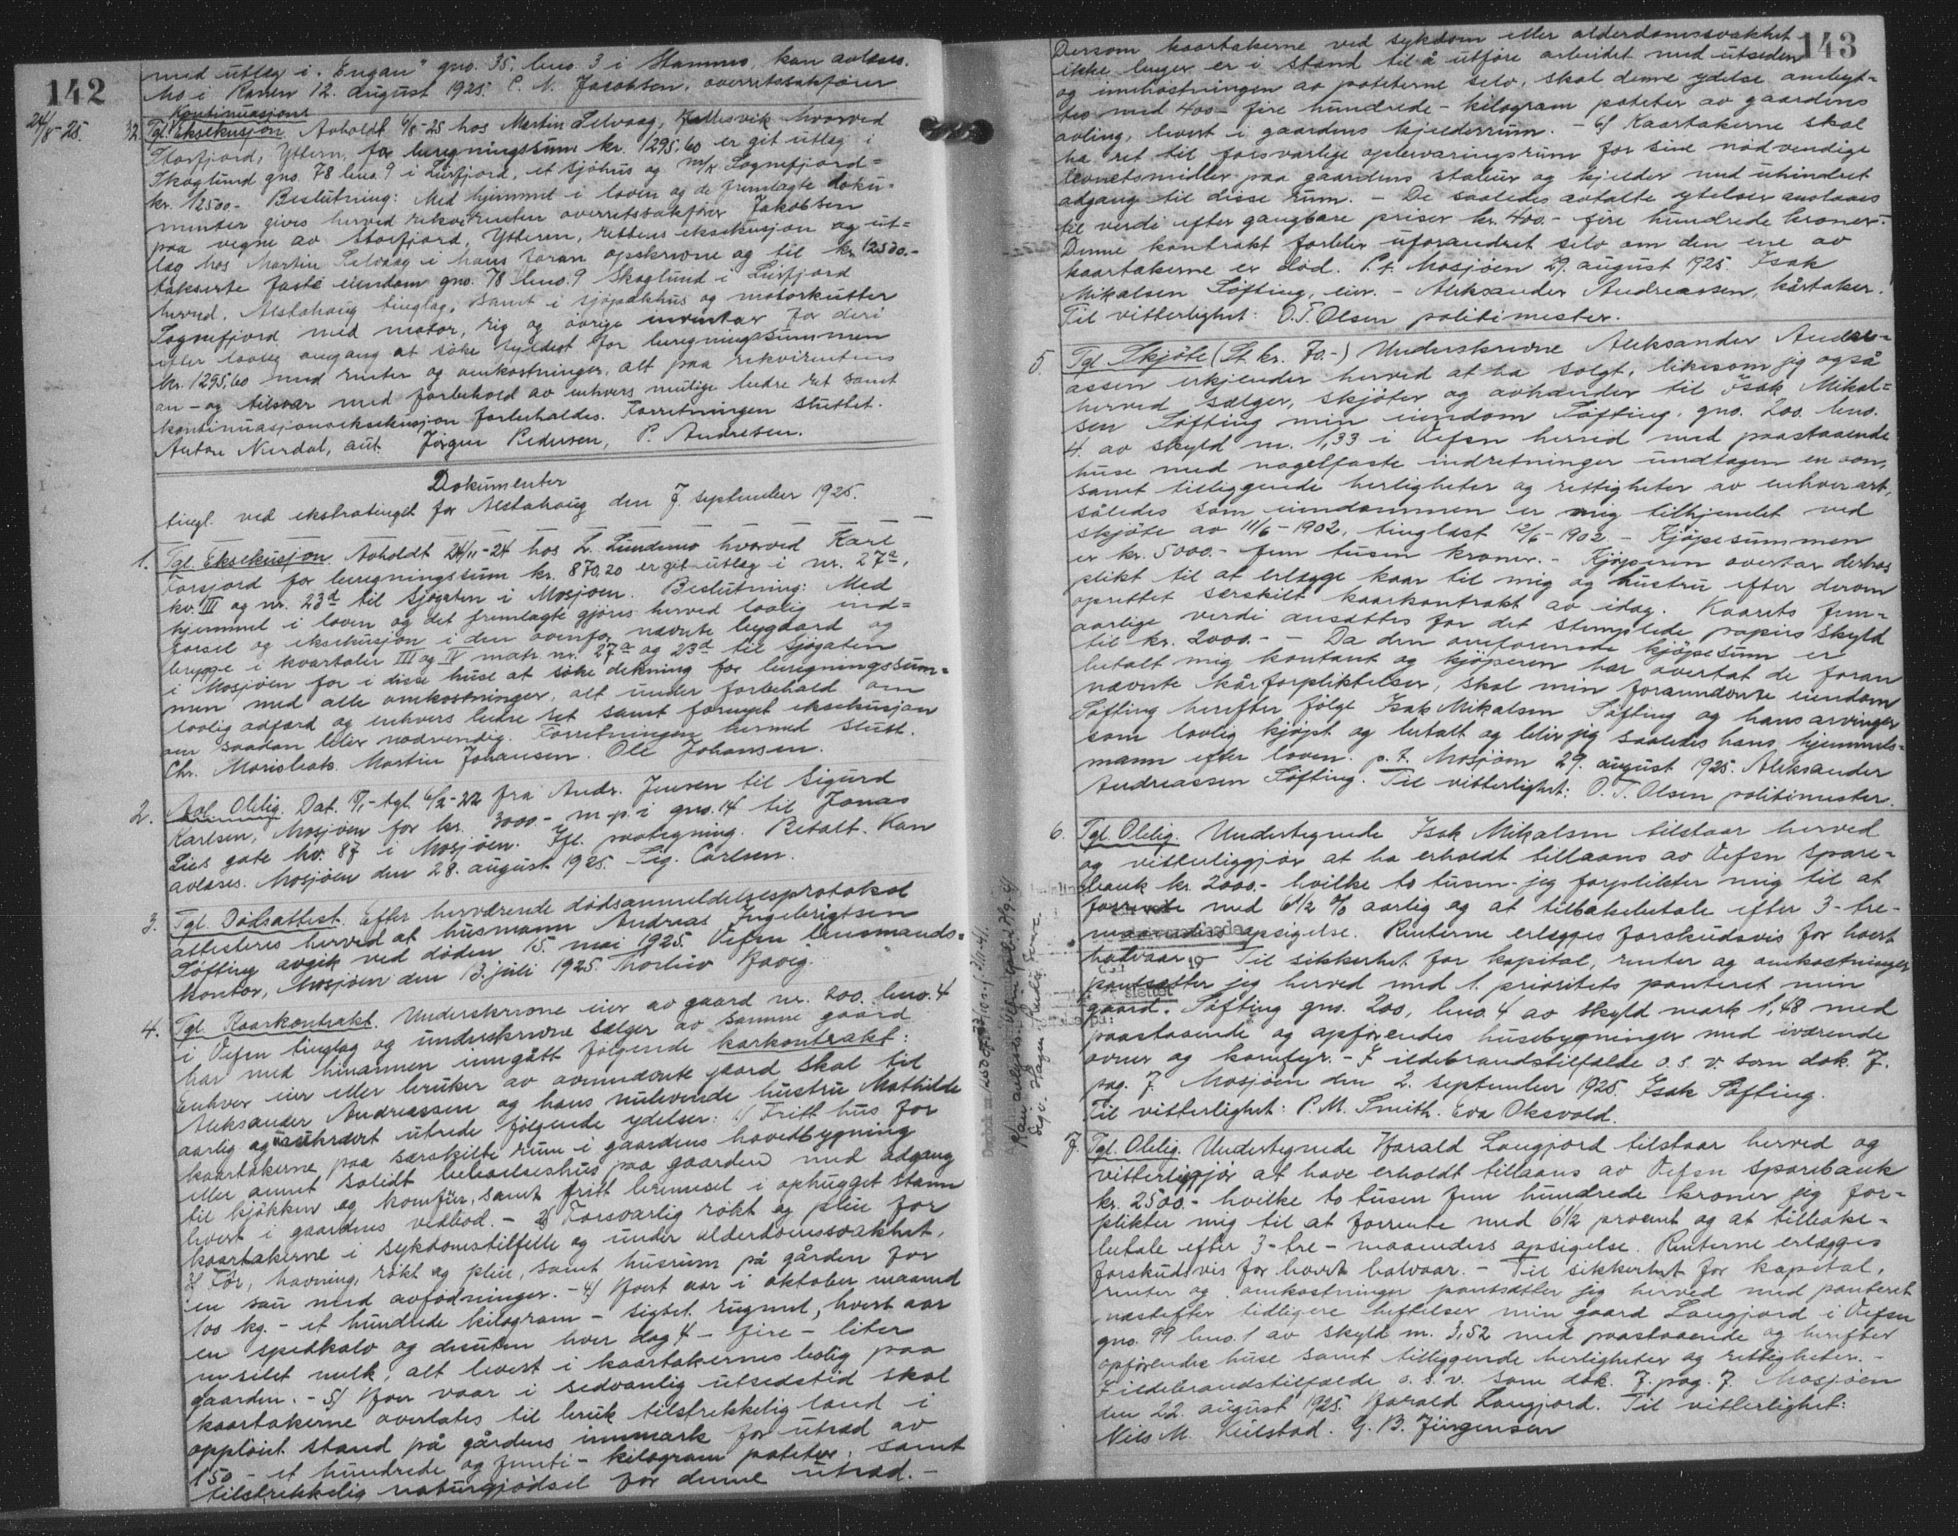 142
med utlæg i "Engan" gno. 35 bno. 3 i Hamnes, kan avlæses.
Mo i Ranen 12. august 1925. C. N. Jacobsen, overretssakfører
24/8-25.
Kontinuasjons
32. Tgl. Eksekusjon Avholdt 6/8-25 hos Martin Selvaag, hvorved
Storfjord, Ytteren, for beregningssum kr. 1295.60 er git utlæg i
Skoglund gno. 78 bno. 9 i Leirfjord, et sjøhus og m/k Sognefjord =
kr. 12500.- Beslutning: Med hjemmel i loven og de fremlagte doku-
menter gives herved rekvirenten overretssakfører Jakobsen
paa vegne av Storfjord, Ytteren, rettens eksekusjon og ut=
læg hos Martin Selvaag i hans foran opskrevne og til kr. 12500.-
takserte faste eiendom gno. 78 bno. 9 Skoglund i Leirfjord
herred, Alstahoug tinglag, samt i sjøpakhus og motorkutter
Sognefjord med motor, rig og øvrige inventar for deri
efter lovlig omgang at søke fyldest for beregningssummen
kr. 1295,60 med renter og omkostninger, alt paa rekvirentens
an- og tilsvar med forbehold av enhvers mulige bedre ret samt
kontinuasjonseksekusjon forbeholdes. Forretningen sluttet.
Anton Nerdal, aut. Jørgen Pedersen, P. Andresen.
Dokumenter
tingl. ved ekstratinget for Alstahoug den 7. september 1925.
1. Tgl. Eksekusjon Avholdt 24/11-24 hos L. Lundemo hvorved Karl
Forsjord for beregningssum kr. 870,20 er git utlæg i nr. 27a,
kv. III og nr. 23d til Sjøgaten i Mosjøen. Beslutning: Med
hjemmel i loven og det fremlagte gjøres herved lovlig ind=
førsel og eksekusjon i den ovenfor nævnte bygaard og
brygge i kvartaler III og IV matr. nr. 27a og 23d til Sjøgaten
i Mosjøen for i disse huse at søke dekning for beregningssum=
men med alle omkostninger, alt under forbehold om
lovlig adfærd og enhvers bedre ret samt fornyet eksekusjon
om saadan blir nødvendig. Forretningen hermed slutt.
Chr. Marisleats. Martin Johansen. Ole Johansen.
2. Avl. Oblig. Dat. tgl. 6/2-22 fra Andr. Jensen til Sigurd
Karlsen, Mosjøen for kr. 3000.- m.p. i gno. 14 til Jonas
Lies gate kv. 87 i Mosjøen. Ifl. paategning. Betalt. Kan
avlæses. Mosjøen den 28. august 1925. Sig. Carlsen.
3. Tgl. Dødsattest. Efter herværende dødsanmeldelsesprotokol
attesteres herved at husmann Andreas Ingebrigtsen
Søfting avgik ved døden 15. mai 1925. Vefsn lensmands-
kontor, Mosjøen den 13. juli 1925. Thorleiv
4. Tgl. Kaarkontrakt. Underskrevne eier av gaard nr. 200. bno. 4
i Vefsn tinglag og underskrevne sælger av samme gaard
har med hinannen inngått følgende karkontrakt:
Enhver eier eller bruker av ovennævnte gaard skal til
Aleksander Andreassen og hans nulevende hustru Mathilde
aarlig og usvækket utrede følgende ydelser: 1/ Fritt hus for
kaartakerne paa særskilte rum i gaardens hovedbygning
eller annet solidt beboelseshus paa gaarden med adgang
til kjøkken og komfyr, samt fritt brensel i ophugget stann
levert i gaardens vedbod. - 2/ Forsvarlig røkt og pleie for
kaartakerne i sykdomstilfelle og under alderdomssvakhet.
3/ Fôr, havning, røkt og pleie, samt husrum på gården for
en sau med avfødninger. - 4/ Hvert aar i oktober maaned
100 kg. - et hundrede kilogram - sigtet rugmel, hvert aar
en spedkalv og desuten hver dag 4 - fire - liter
nysilet melk, alt levert i kaartakernes bolig paa
gaarden. - 5/ Hver vaar i sedvanlig utsedstid skal
kaartakerne overlates til bruk tilstrekkelig land i
oppløiet stand på gårdens innmark for utsæd av
150 - et hundrede og femti - kilogram poteter, samt
tilstrekkelig naturgjødsel for denne utsæd. -
143
Dersom kaartakerne ved sykdom eller alderdomssvakhet
ikke lenger er i stand til å utføre arbeidet med utseden
og innhøstningen av poteterne selv, skal denne ydelse ombyt-
tes med 400 - fire hundrede - kilogram poteter av gaardens
avling, levert i gaardens kjelderrum. - 6/ Kaartakerne skal
ha ret til forsvarlige opbevaringsrum for sine nødvendige
levnetsmidler paa gaardens stabur og kjelder med uhindret
adgang til disse rum. - De saaledes avtalte ytelser anslaaes
til verdi efter gangbare priser kr. 400.- fire hundrede kroner. -
Denne kontrakt forblir uforandret selv om den ene av
kaartakerne er død. P.t. Mosjøen 29. august 1925. Isak
Mikalsen Søfting, eier. - Aleksander Andreassen, kårtaker.
Til vitterlighet: O. T. Olsen politimester.
5. Tgl. Skjøte (St. kr. 70.-) Underskrevne Aleksander Andre-
assen erkjender herved at ha solgt, likesom jeg også
herved sælger, skjøter og avhænder til Isak Mikal=
sen Søfting min eiendom Søfting, gno. 200. bno.
4. av skyld m. 1,33 i Vefsn herred med paastaaende
huse med nagelfaste indretninger undtagen en ovn,
samt tilliggende herligheter og rettigheter av enhver art,
således som eiendommen er mig tilhjemlet ved
skjøte av 11/6-1902, tinglæst 12/6-1902. - Kjøpesummen
er kr. 5000.- fem tusen kroner. - Kjøperen overtar derhos
plikt til at erlægge kaar til mig og hustru efter derom
oprettet særskilt kaarkontrakt av idag. Kaarets fem-
aarlige verdi ansættes for det stemplede papirs skyld
til kr. 2000.- - Da den omforenede kjøpesum er
betalt mig kontant og kjøperen har overtat de foran
nævnte kårforpliktelser, skal min forannævnte eiendom
Søfting herefter følge Isak Mikalsen Søfting og hans arvinger
som lovlig kjøpt og betalt og blir jeg saaledes hans hjemmels-
mann efter loven. p.t. Mosjøen 29. august 1925. Aleksander
Andreassen Søfting. Til vitterlighet: O. T. Olsen politimester.
6. Tgl. Oblig. Undertegnede Isak Mikalsen tilstaar herved
og vitterliggjør at ha erholdt tillaans av Vefsn spare-
bank kr. 2000.- hvilke to tusen jeg forplikter mig til at
forrente med 6 1/2 % aarlig og at tilbakebetale efter 3-tre-
maaneders opsigelse. Renterne erlægges forskudsvis for hvert
halvaar. - Til sikkerhet for kapital, renter og omkostninger
pantsætter jeg herved med 1. prioritets panteret min
gaard. Søfting gno. 200, bno. 4 av skyld mark 1,48 med
paastaaende og opførendes husebygninger med iværende
ovner og komfyr. - I ildebrandstilfælde o.s.v. som dok. 7.
pag. 7. Mosjøen den 2. september 1925. Isak Søfting.
Til vitterlighet: P. M. Smith. Eva Oksvold.
7. Tgl. Oblig. Undertegnede Harald Langjord tilstaar herved og
vitterliggjør at have erholdt tillaans av Vefsn Sparebank
kr. 2500.- hvilke to tusen fem hundrede kroner jeg for-
plikter mig til at forrente med 6 1/2 procent og at tilbake-
betale efter 3-tre-maaneders opsigelse. Renterne erlægges
forskudsvis for hvert halvaar. - Til sikkerhet for kapital,
renter og omkostninger pantsætter jeg herved med panteret
næstefter tidligere heftelser min gaard Langjord i Vefsn
gno. 99 bno. 1 av skyld m. 3,52 med paastaaende og herefter
opførendes huse samt tilliggende herligheter og rettigheter. -
I ildebrandstilfælde o.s.v. som dok. 7. pag. 7. Mosjøen
den 22. august 1925. Harald Langjord. Til vitterlighet:
Nils M. Kulstad. G. B. Jürgensen
slettet